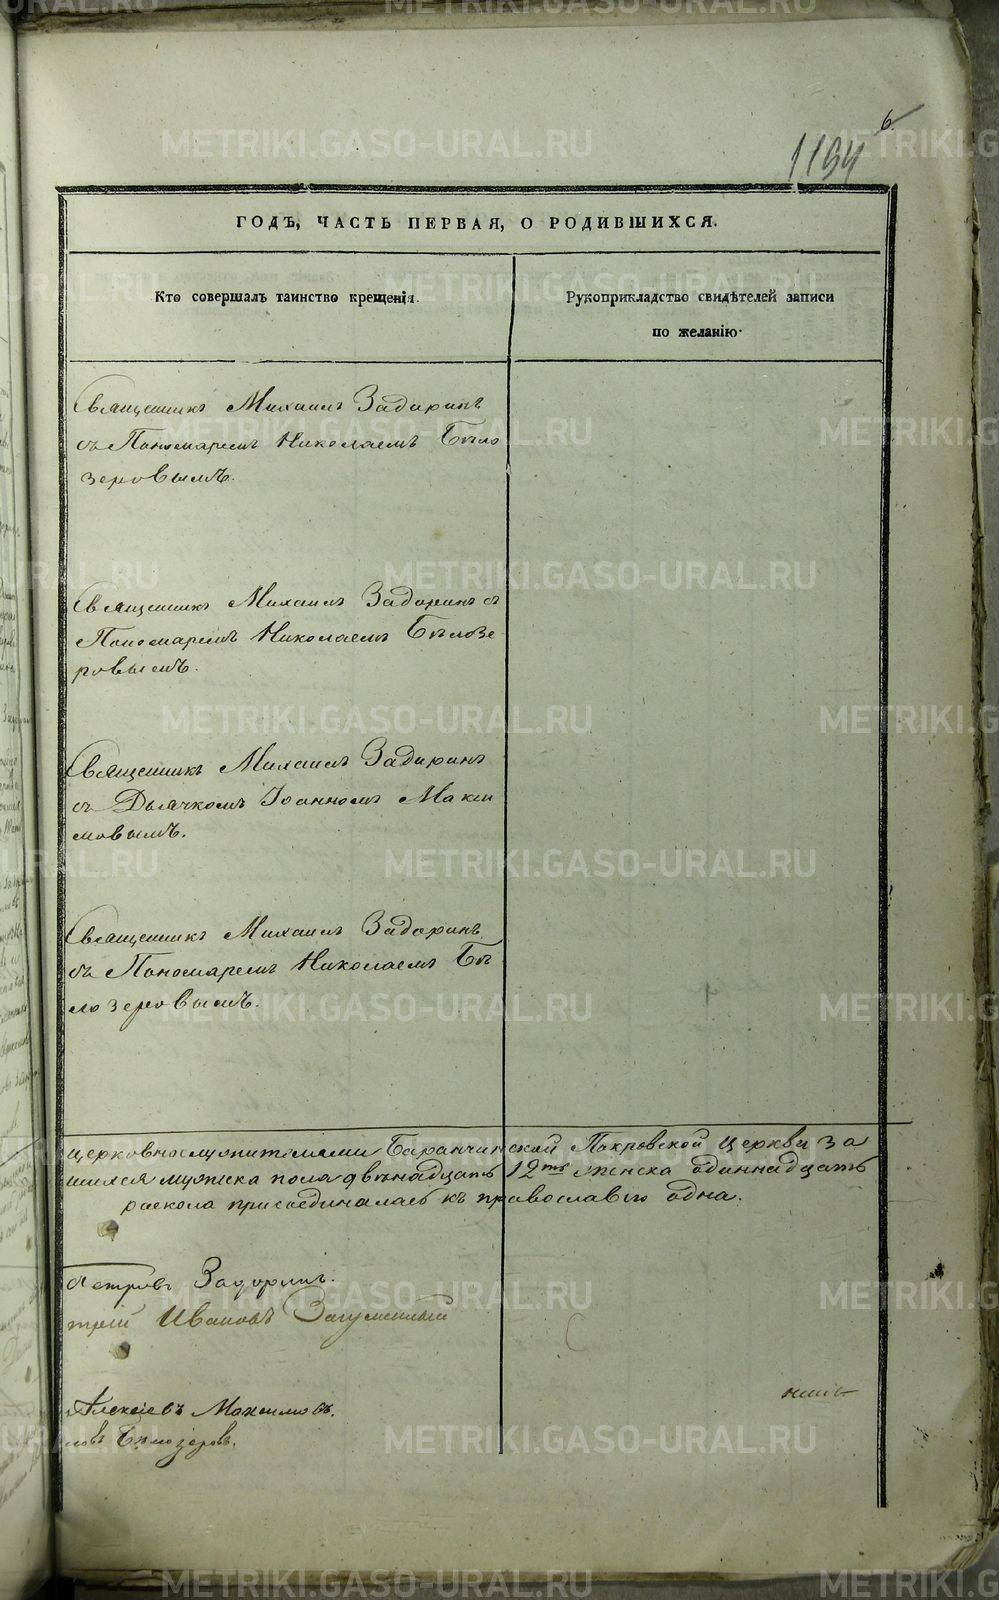 6.
1194
ГОДЪ, ЧАСТЬ ПЕРВАЯ, О РОДИВШИХСЯ.
Кто совершалъ таинство крещенія.
Рукоприкладство свидѣтелей записи
по желанію.
Священникъ Михаилъ Задоринъ
съ Пономаремъ Николаемъ Бѣло
зеровымъ.
Священникъ Михаилъ Задоринъ съ
Пономаремъ Николаемъ Бѣлозе
ровымъ.
Священникъ Михаилъ Задоринъ
съ Дьячкомъ Іоанномъ Макси
мовымъ.
Священникъ Михаилъ Задоринъ
съ Пономаремъ Николаемъ Бѣ
лозеровымъ.
церковнослужителями Баранчинской Покровской церкви за
шихся мужеска пола двѣнадцать 12ть женска одиннадцать
раскола присоединилась къ православію одна.
Петровъ Задоринъ.
трій Ивановъ Загуменный
Алексіевъ Максимовъ.
Бѣлозеровъ.
METRIKI.GASO-URAL.RU